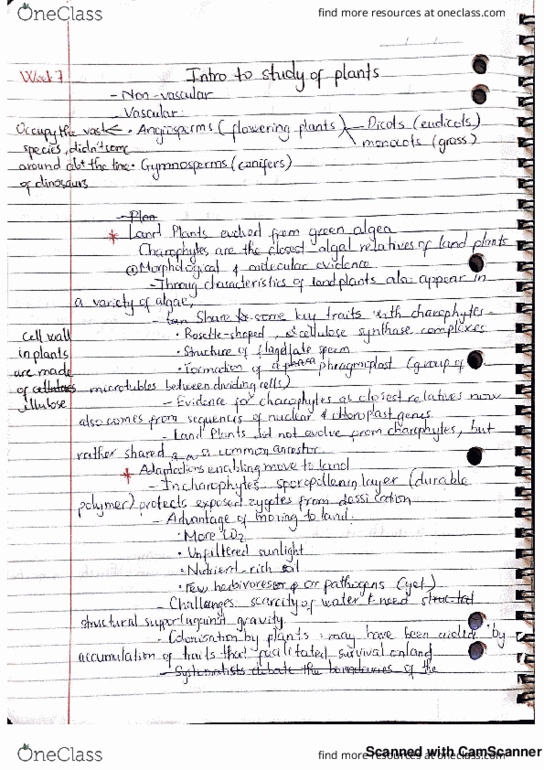 OneClass
find more resources at oneclass.com
Week 7
Intro to study of plants
- Non-vascular
- Vascular:
Occupy the vast ← • Angiosperms (flowering plants) Dicots (eudicots)
species, didn't come monocots (grass)
around abt the time • Gymnosperms (conifers)
of dinosaurs
- Plan
* Land Plants evolved from green algea
Charophytes are the closest algal relatives of land plants
① Morphological & molecular evidence
- characteristics of land plants also appear in
a variety of algae,
- Share some key traits with charophytes -
• Rosette-shaped, cellulose synthase complexes
cell wall
in plants • Structure of flagellate sperm
are made • Formation of a phragmoplast (group of
of microtubles between dividing cells)
- Evidence for charophytes as closest relatives now
also comes from sequences of nuclear & chloroplast genes.
- Land Plants did not evolve from charophytes, but
rather shared a common ancestor.
* Adaptations enabling move to land
- In charophytes sporopollenin layer (durable
polymer) protects exposed zygotes from
- Advantage of moving to land:
• More CO2
• Unfiltered sunlight
• Nutrient-rich soil
• Few herbivores or pathogens (yet)
- Challenges: scarcity of water & need
structural support against gravity
- Colonisation by plants may have been by
accumulation of traits that facilitated survival on land
- Systematists debate the boundaries of the
OneClass
find more resources at oneclass.com
Scanned with CamScanner